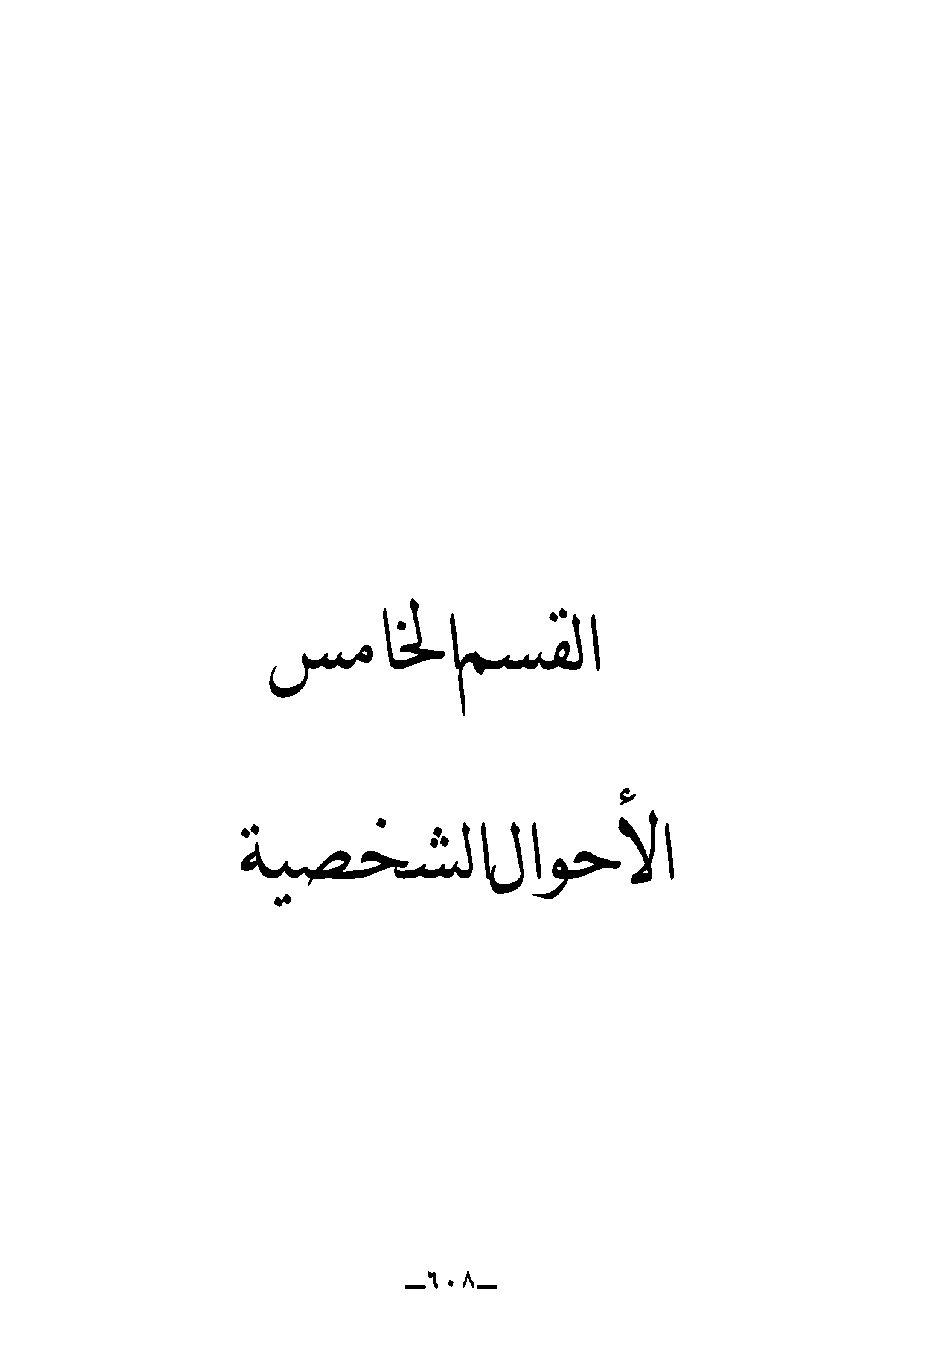 القسم الخامس
الأحوال الشخصية
ـ٦٠٨ـ